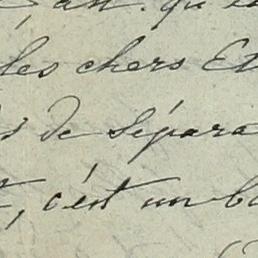 les chers Et
de sépara
, c'est un b